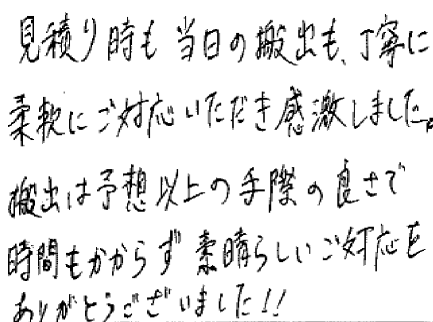 見積り時も当日の搬出も、丁寧に
柔軟にご対応いただき感激しました。
搬出は予想以上の手際の良さで
時間もかからず素晴らしいご対応を
ありがとうございました!!